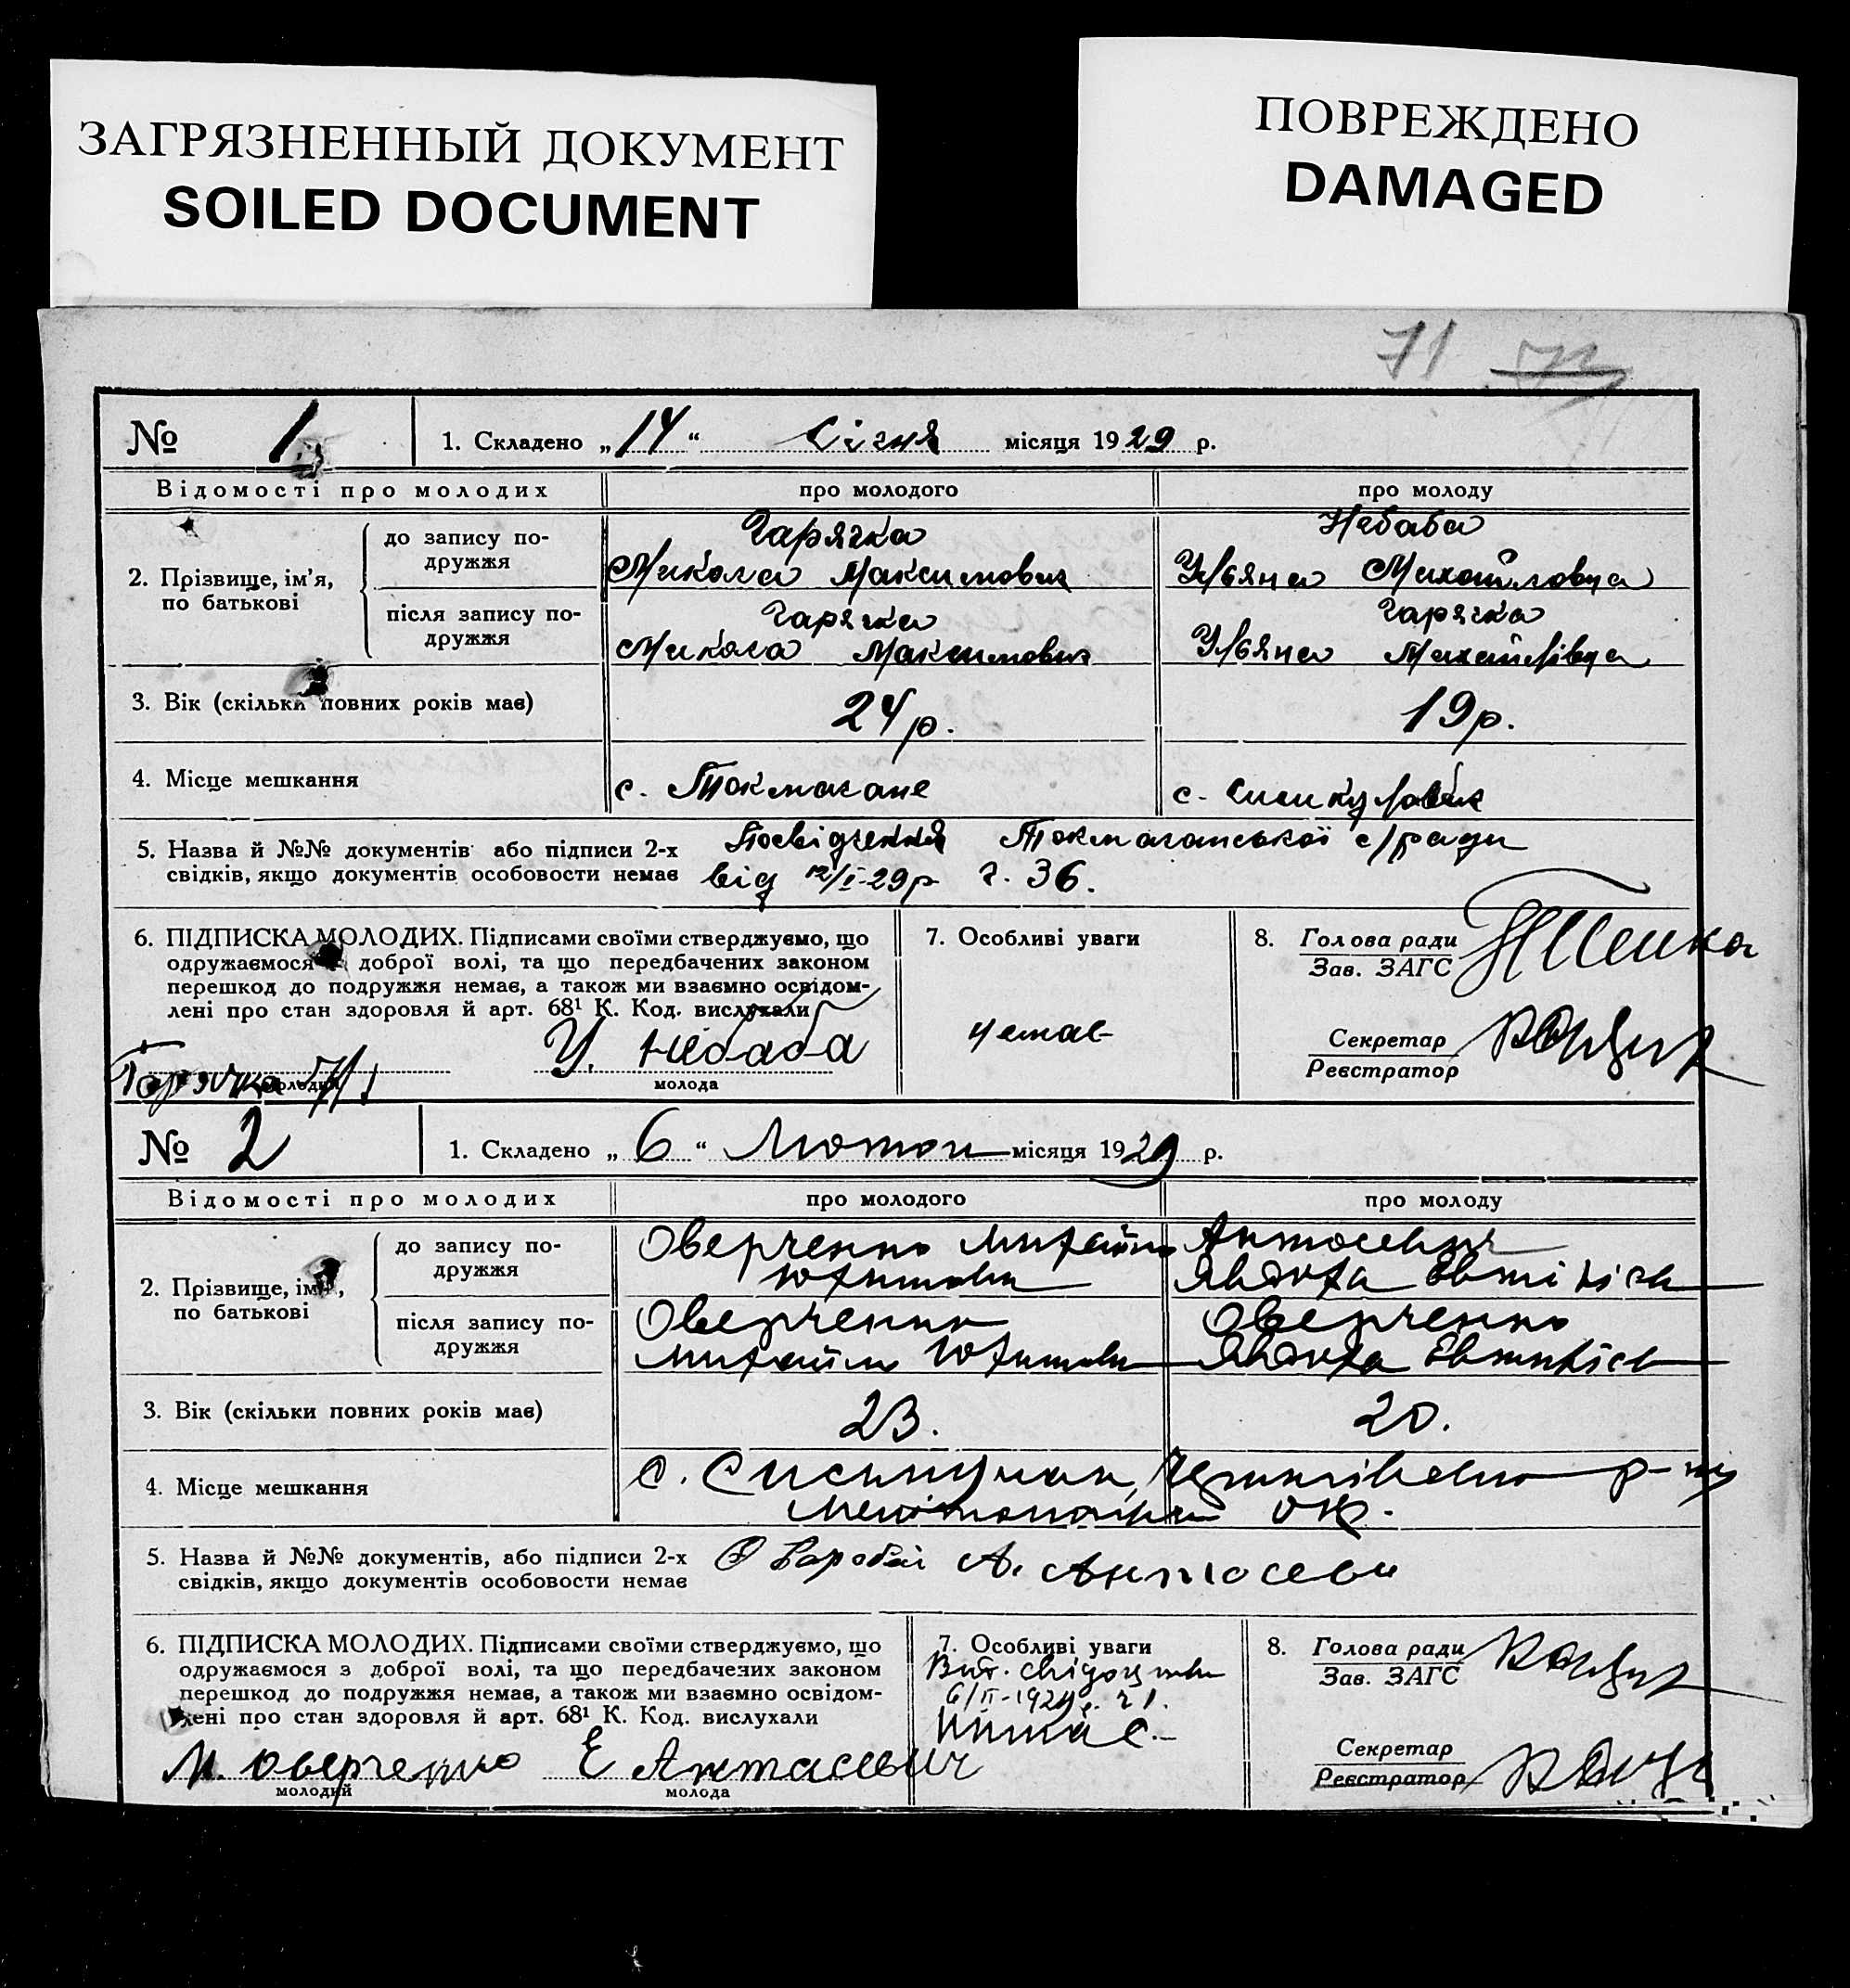 ЗАГРЯЗНЕННЫЙ ДОКУМЕНТ
SOILED DOCUMENT
ПОВРЕЖДЕНО
DAMAGED
71
№ 1 1. Складено „14“ Січня місяця 1929 р.
Відомості про молодих про молодого про молоду
2. Прізвище, ім’я, по батькові
до запису по-
дружжя
Гарячка Небаба
Микола Максимович Ульяна Михайловна
після запису по-
дружжя
Гарячка Гарячка
Микола Максимович Ульяна Михайлівна
3. Вік (скільки повних років має) 24 р. 19 р.
4. Місце мешкання с. Токмачане с.
5. Назва й №№ документів або підписи 2-х Посвідчення Токмачанської с/ради
свідків, якщо документів особовости немає від 12/I-29 р ч. 36.
6. ПІДПИСКА МОЛОДИХ. Підписами своїми стверджуємо, що
одружаємося доброї волі, та що передбачених законом
перешкод до подружжя немає, а також ми взаємно освідом-
лені про стан здоровля й арт. 68¹ К. Код. вислухали
Гарячка У. Небаба
молодий молода
7. Особливі уваги
немає
8. Голова ради
Зав. ЗАГС
Секретар
Реєстратор
№ 2 1. Складено „6“ Лютого місяця 1929 р.
Відомості про молодих про молодого про молоду
2. Прізвище, ім’я, по батькові
до запису по-
дружжя
Оверченко Михайло Антосевич
Юхимович Явдоха
після запису по-
дружжя
Оверченко Оверченко
Михайло Юхимович Явдоха
3. Вік (скільки повних років має) 23. 20.
4. Місце мешкання с. р-ну
окр.
5. Назва й №№ документів, або підписи 2-х А. Антосевич
свідків, якщо документів особовости немає
6. ПІДПИСКА МОЛОДИХ. Підписами своїми стверджуємо, що
одружаємося з доброї волі, та що передбачених законом
перешкод до подружжя немає, а також ми взаємно освідом-
лені про стан здоровля й арт. 68¹ К. Код. вислухали
М. Оверченко Е Антасевич
молодий молода
7. Особливі уваги
6/II-1929 р. ч 1.
8. Голова ради
Зав. ЗАГС
Секретар
Реєстратор